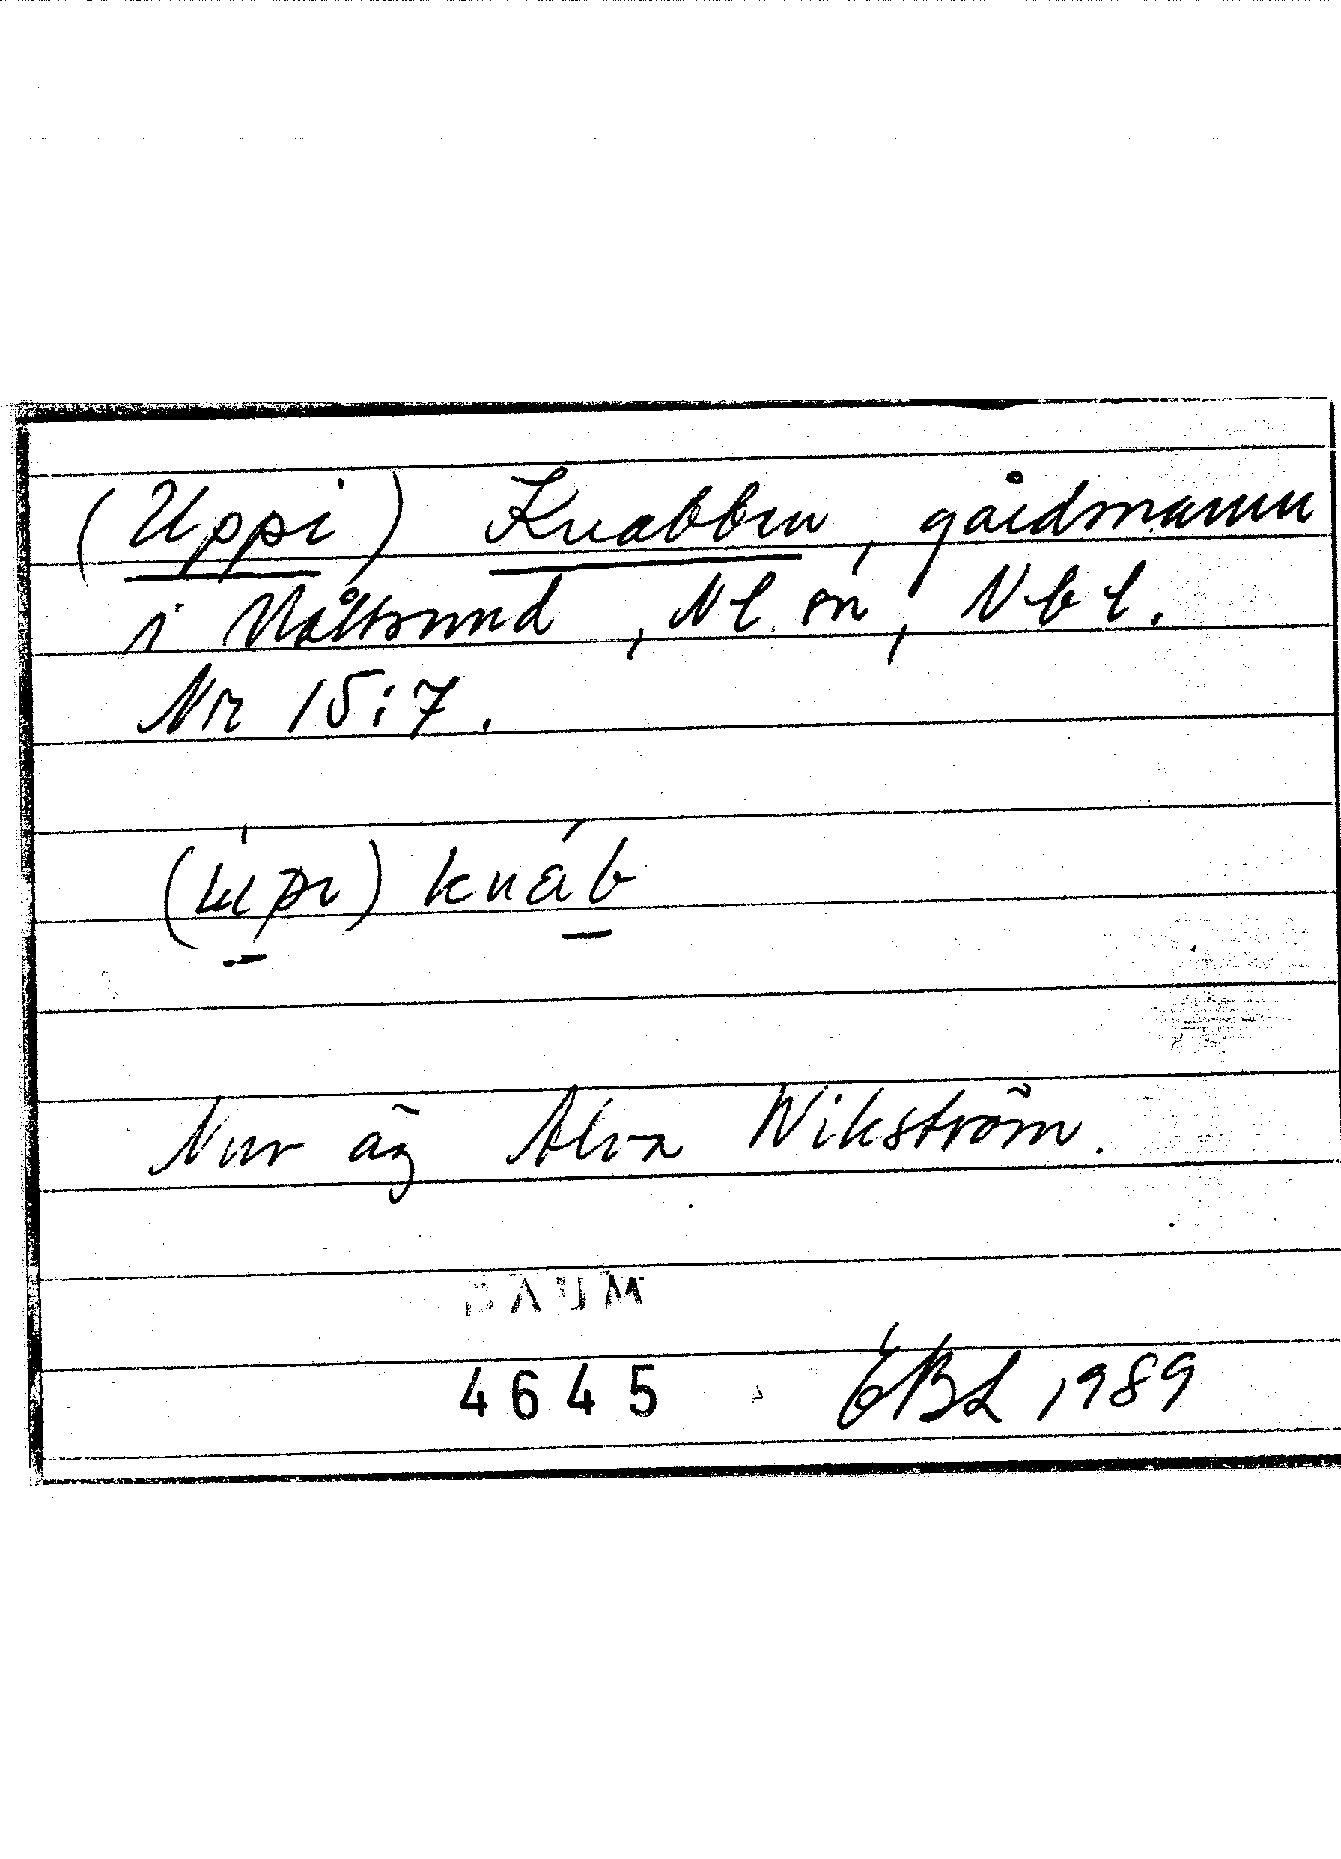 (Uppi) Knabben, gårdmamn
i Nåttsund, Nl sn, Nbl.
Nr 15:7.
(úpi) knáb
Nuv äg Alva Wikström.
DAUM
4645 EBL 1989